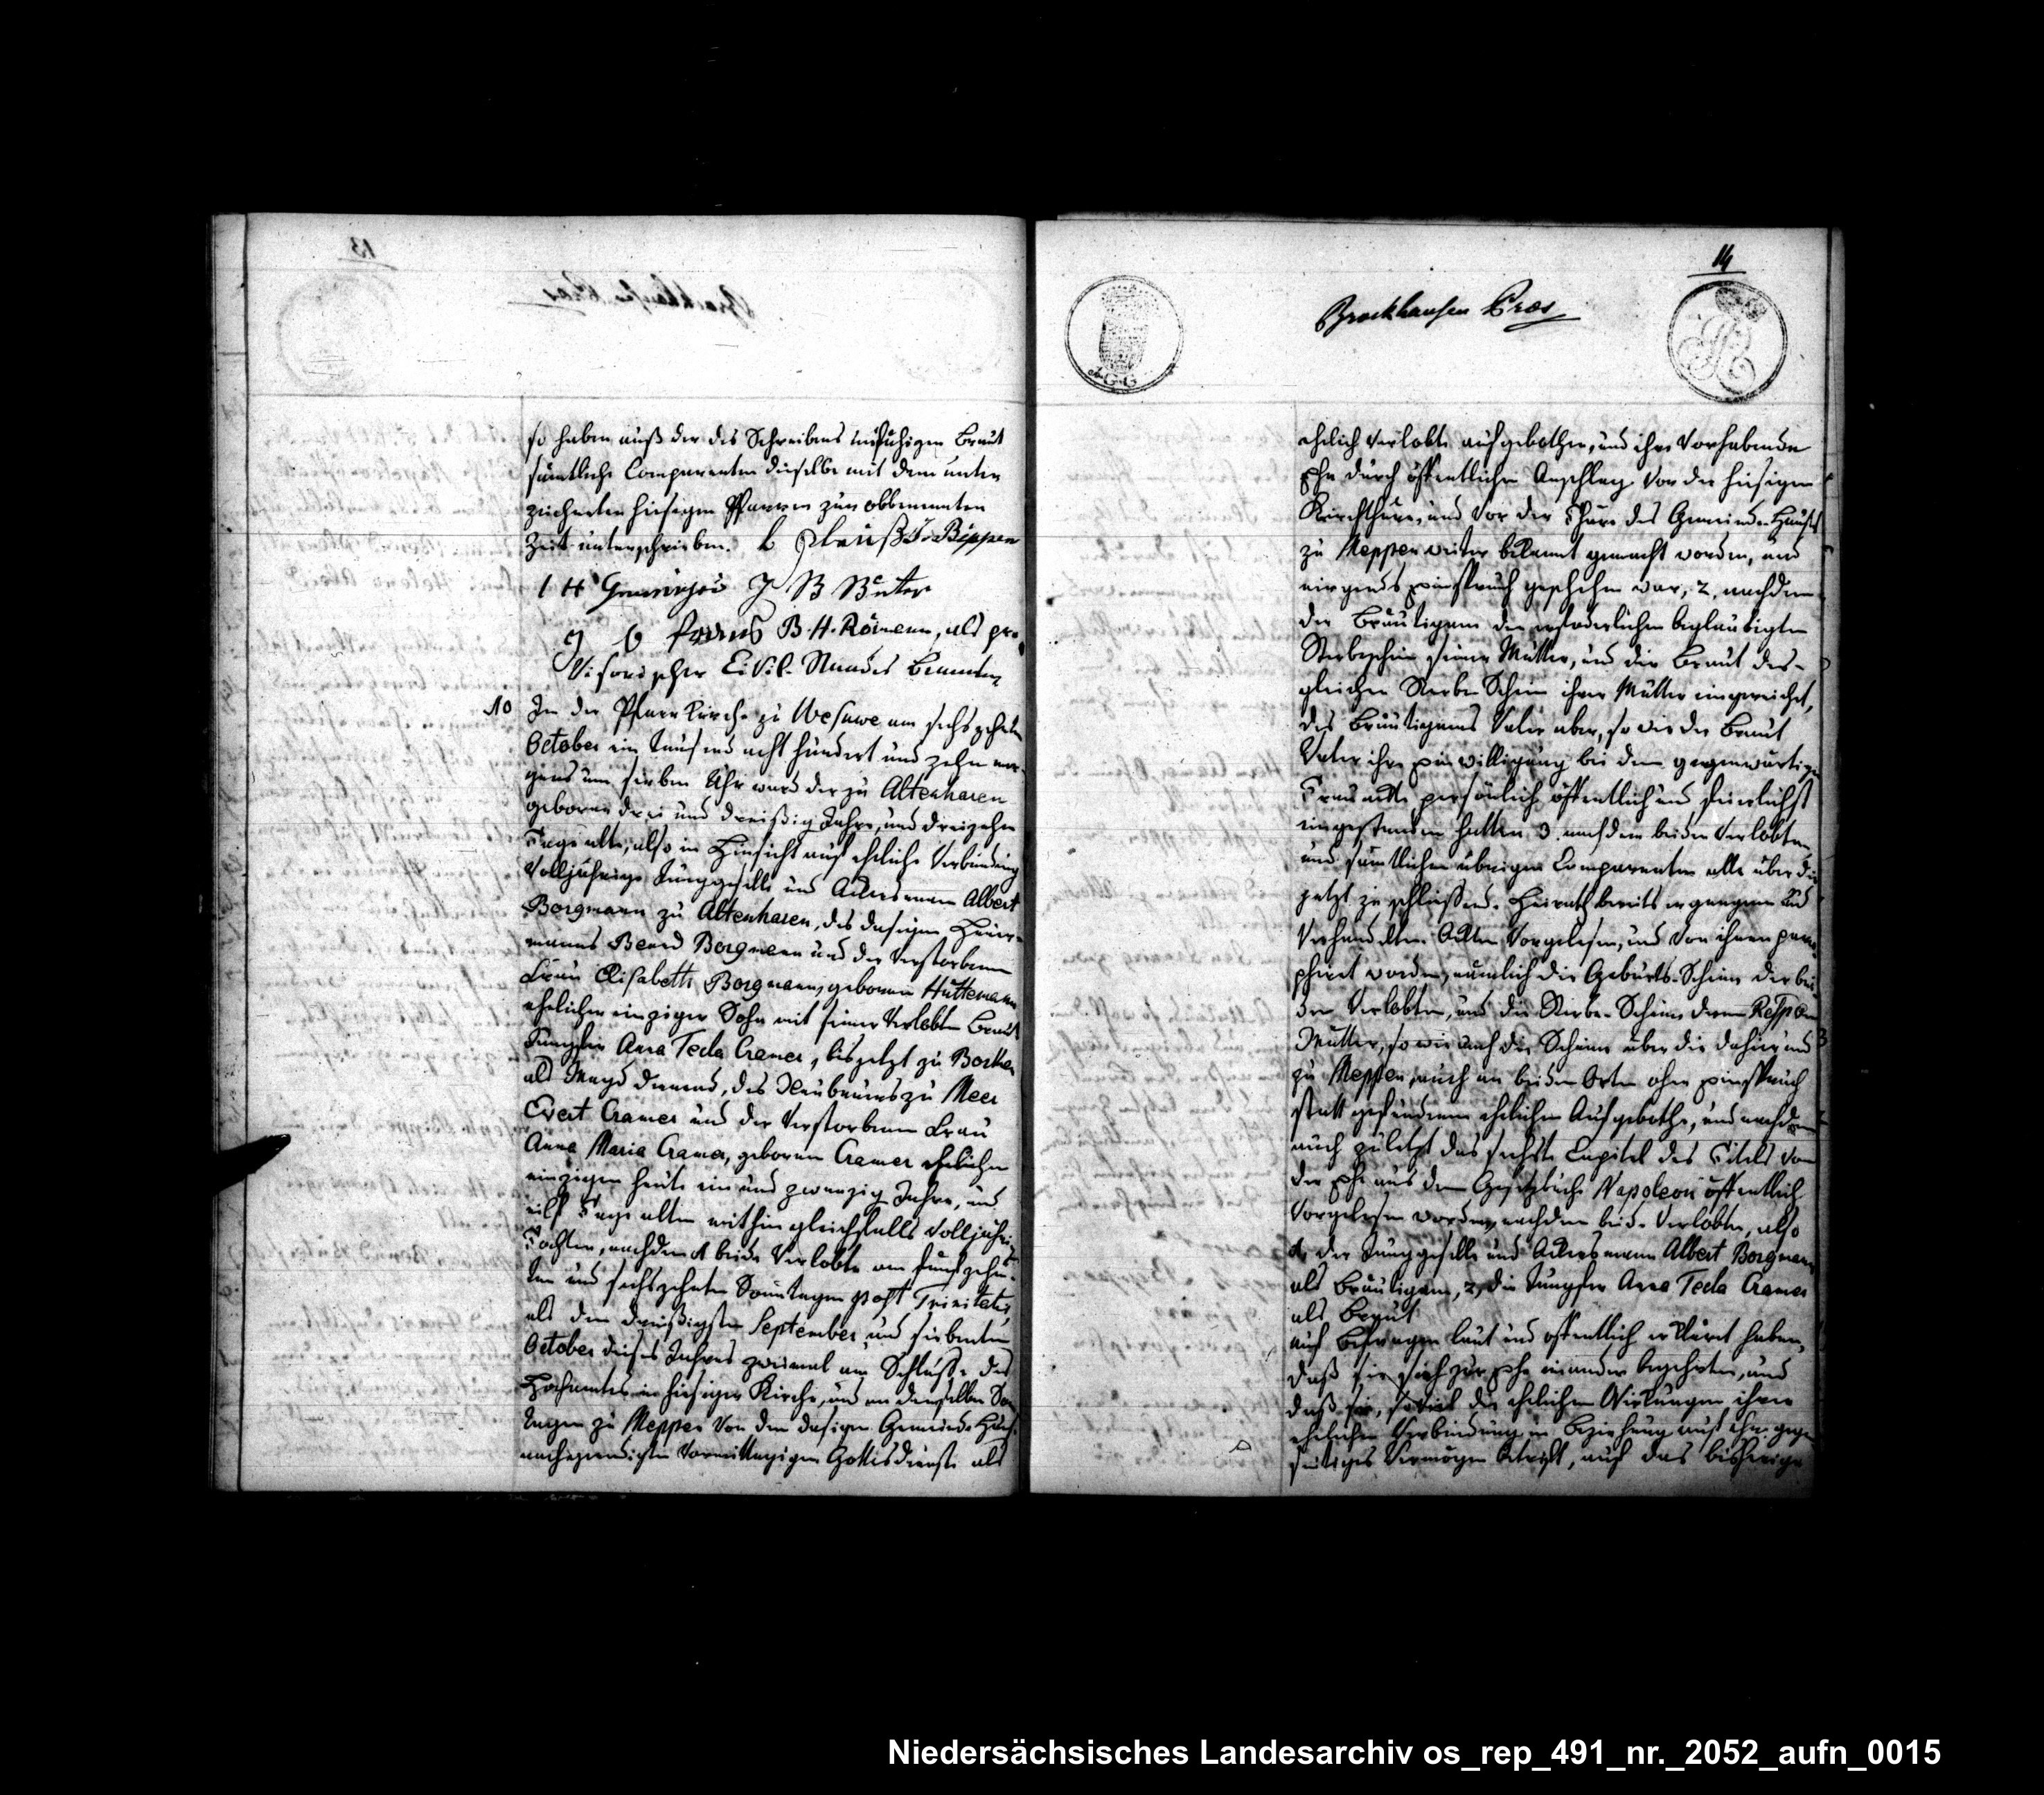 14
Brockhausen Præs
A.G.G
so haben auß der des Schreibens unfähigen Braut
sämtliche Comparenten dieselbe mit dem unter
zeichneten hiesigen Pfarrer zur obbenannten
Zeit unterschrieben.
J B Buter
B. H. Römann, als pro
visorischer Civil-Standes Beamter
10 In der Pfarrkirche zu Wesuwe am sechszehnten
October ein Tausend acht hundert und zehn mor-
gens um sieben Uhr ward der zu Altenharen
geborne drei und dreißig Jahre, und dreizehn
Tage alte, also in Hinsicht auf eheliche Verbindung
Volljährige Junggeselle und Ackersmann Albert
Borgmann zu Altenharen, des dasigen Heuer-
manns Berend Borgmann und der verstorbenen
Frau Elisabeth Borgmann, geborenen Hüttemann
ehelicher einziger Sohn mit seiner verlobten Braut
Jungfer Anna Tecla Cramer, bis jetzt zu
als Magd dienend, des Neubauers zu Meer
Evert Cramer und der verstorbenen Frau
Anna Maria Cramer, geborenen Cramer ehelichen
einzigen heute ein und zwanzig Jahre, und
eilf Tage alten mithin gleichfalls volljährigen
Tochter, nachdem 1 beide Verlobte am fünfzehn-
ten und sechszehnten Sonntagen post Trinitatis,
als den dreißigsten September und siebenten
October dieses Jahres zweimal am Schlusse des
Hochamtes in hiesiger Kirche, und an denselben Son
tagen zu Meppen von dem dasigen Gemeinde Hause
nachgeendigten vormittägigen Gottesdienste als
ehelich Verlobte aufgebothen, und ihre vorhabende
Ehe durch öffentlichen Anschlag vor der hiesigen
Kirchthüre, und vor der Thüre des Gemeinde-Hauses
zu Meppen weiter bekannt gemacht worden, und
nirgends Einspruch geschehen war, 2, nachdem
der Bräutigam den erfoderlichen beglaubigten
Sterbeschein seiner Mutter, und die Braut des-
gleichen Sterbe Schein ihrer Mutter eingereichet,
des Bräutigams Vater aber, so wie der Braut
Vater ihre Einwilligung bei dem gegenwärtigen
Trauackte persönlich öffentlich und feierlichst
eingestanden hatten 3. nachdem beiden Verlobten,
und sämtlichen übrigen Comparenten alle über die
jetzt zu schließende Heirath bereits ergangene und
verhandelten Ackten vorgelesen, und von ihnen para-
phiret worden, nämlich die Geburts-Scheine der bei-
den Verlobten, und die Sterbe-Scheine deren Respven
Mütter, so wie auch die Scheine über die dahier und
zu Meppen, auch an beiden Orten ohne Einspruch
statt gefundenen ehelichen Aufgebothe, und nachdem
auch zuletzt das sechste Capitel des Titels von
der Ehe aus dem Gesetzbuche Napoleon öffentlich
vorgelesen worden, nachdem beide Verlobte, also
1, der Junggeselle und Ackersmann Albert Borgmann
als Bräutigam, 2, die Jungfer Anna Tecla Cramer
als Braut
auf Befragen laut und öffentlich erkläret haben,
daß sie sich zur Ehe einander begehrten, und
daß sie, soviel die ehelichen Wirkungen ihrer
ehelichen Verbindung in Beziehung auf ihr gegen
seitiges Vermögen betrifft, auf das bisherige
Niedersächsisches Landesarchiv os_rep_491_nr._2052_aufn_0015